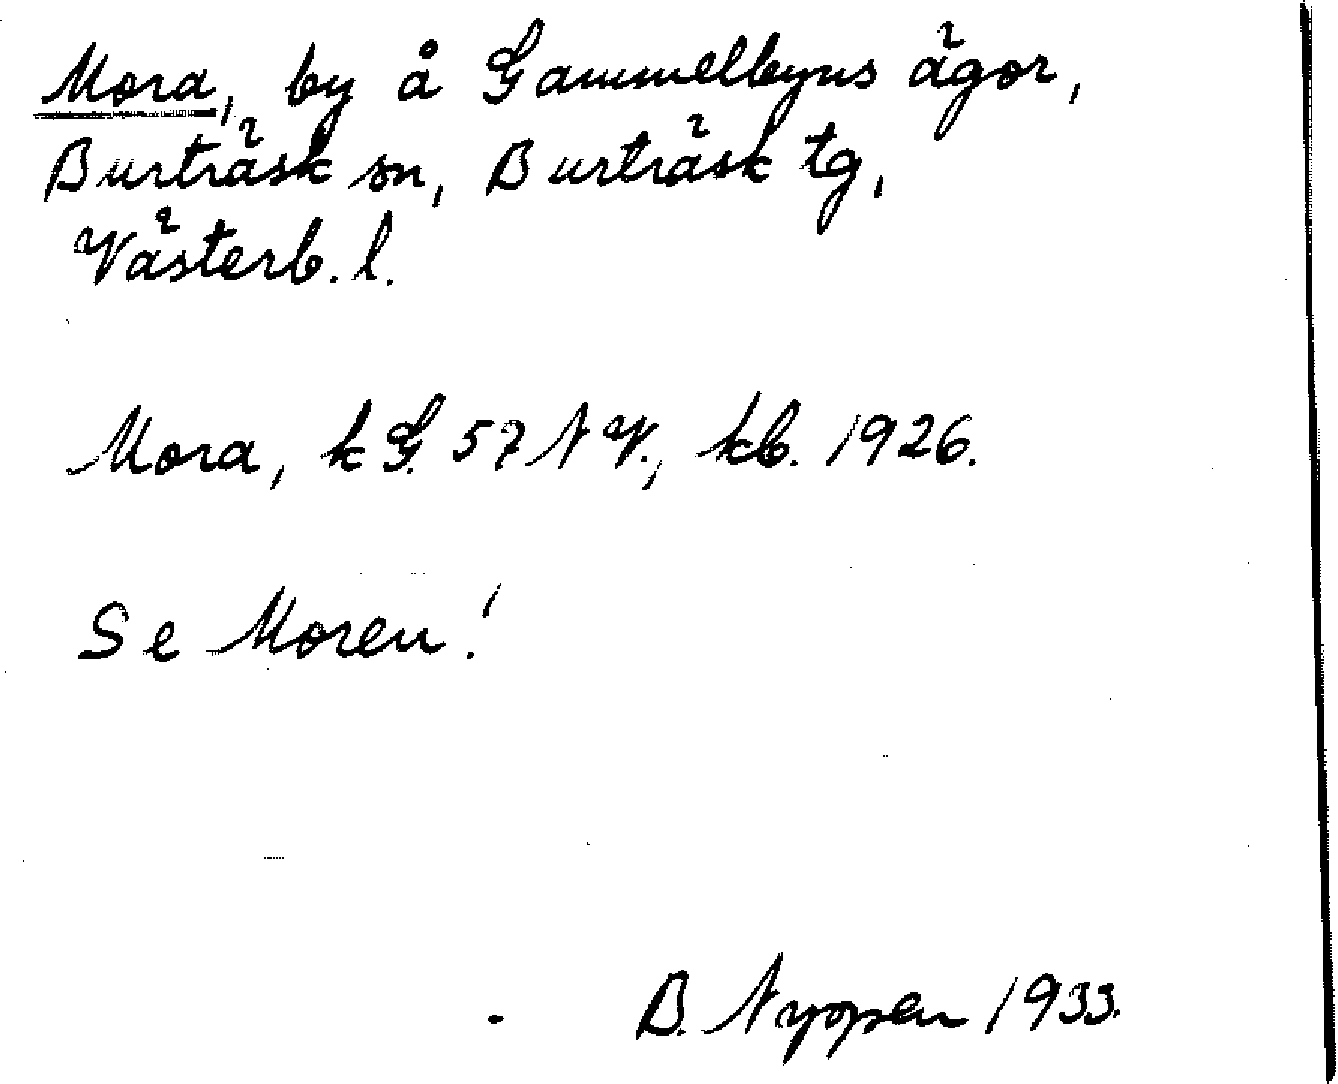 Mora, by å Gammelbyns ägor,
Burträsk sn, Burträsk tg,
Västerb. l.
Mora, k G. 57 N V., kb. 1926.
Se Moren!
B. Nyopen 1933.